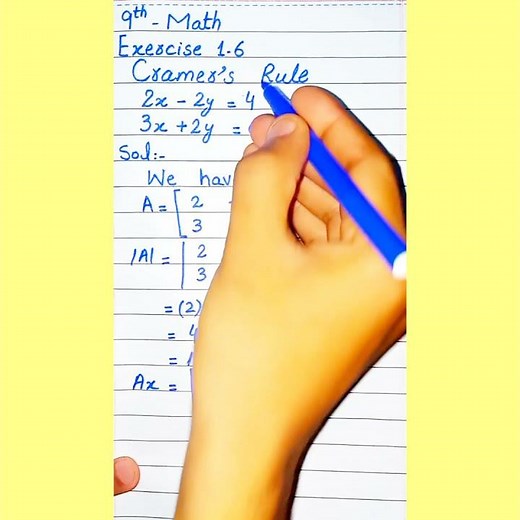 9th - Math
Exercise 1.6
Cramer's Rule
2x - 2y = 4
3x + 2y =
Sol:-
We hav
A = [ 2
3
|A| = | 2
3
= (2)
= 4
=
Ax =